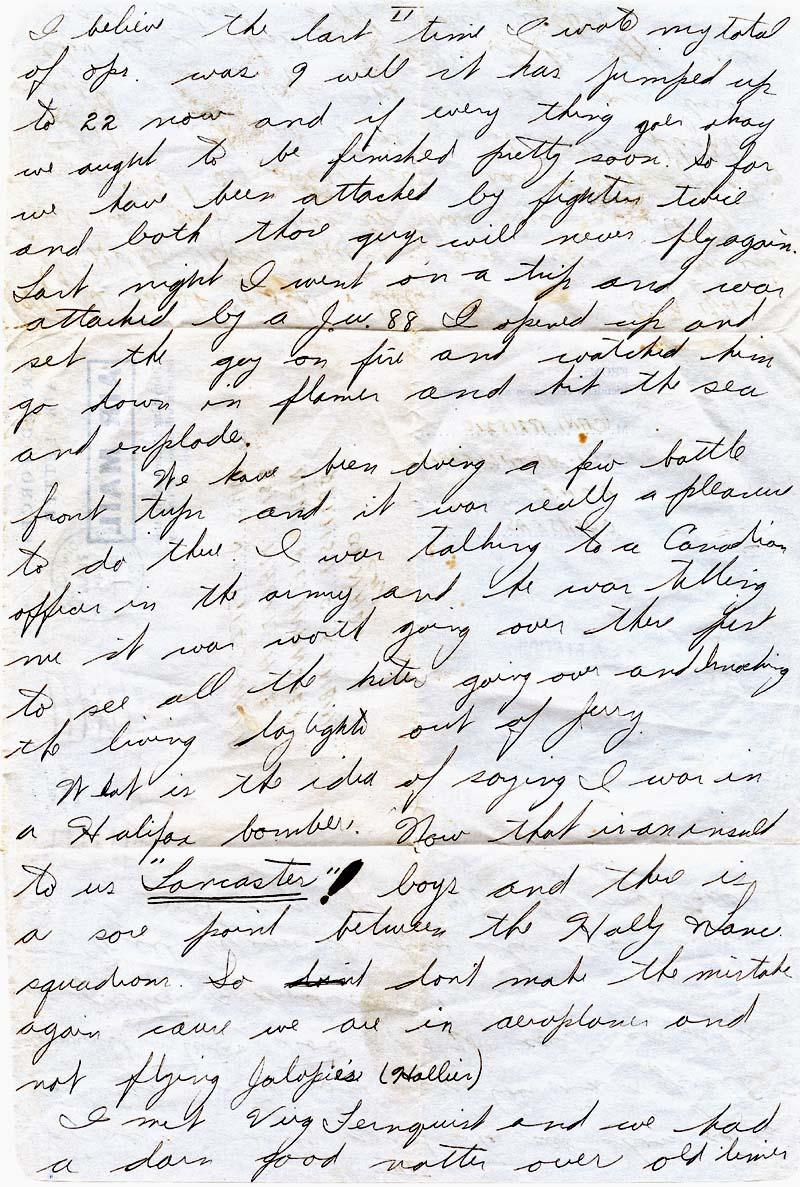 II
I believe the last time I wrote my total
of ops. was 9 well it has jumped up
to 22 now and if every thing goes okay
we aught to be finished pretty soon. So far
we have been attacked by fighters twice
and both those guys will never fly again.
Last night I went on a trip and was
attacked by a J.U. 88 I opened up and
set the guy on fire and watched him
go down in flames and hit the sea
and explode.
We have been doing a few battle
front trips and it was really a pleasure
to do them. I was talking to a Canadian
officer in the army and he was telling
me it was worth going over there just
to see all the kites going over and knocking
the living daylights out of Jerry.
What is the idea of saying I was in
a Halifax bomber. Now that is an insult
to us "Lancaster"! boys and there is
a sore point between the Hally & Lanc.
squadrons. So don't make the mistake
again cause we are in aeroplanes and
not flying Jalopies (Hallies)
I met Virg Fernquist and we had
a darn good natter over old times
AIR MAIL